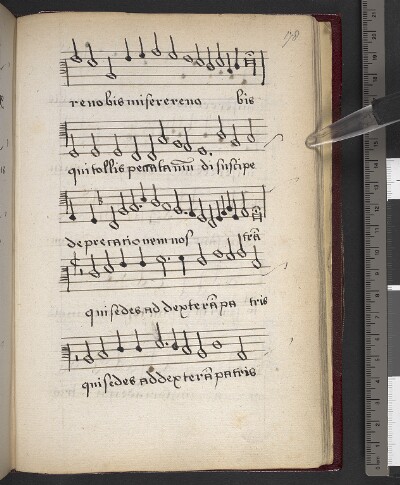 78
re nobis miserere no bis
qui tollis peccata mũ di suscipe
deprecationem nos trã
qui sedes ad dexterã pa tris
qui sedes ad dexterã patris